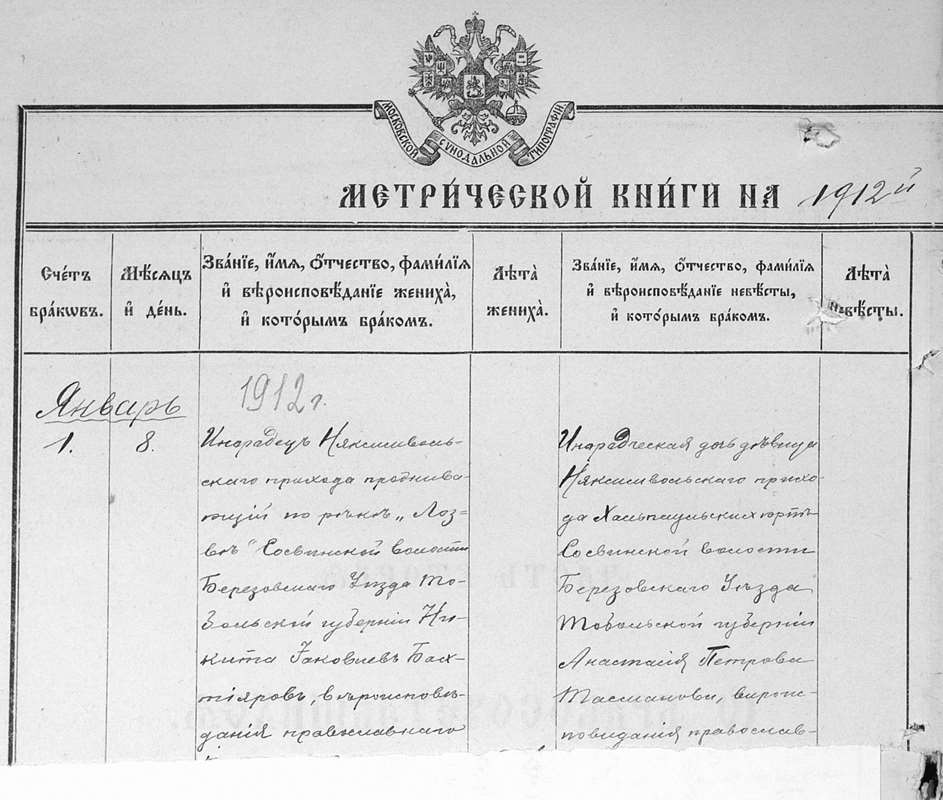 МОСКОВСКОЙ СѴНОДАЛЬНОЙ ТИПОГРАФІИ
МЕТРИ́ЧЕСКОЙ КНИ́ГИ НА 1912й
Сче́тъ
бра́кѡвъ.
Мѣ́сяцъ
и҆ де́нь.
Зва́нїе, и҆́мя, ѻ҆́тчество, фами́лїя
и҆ вѣроисповѣ́данїе жениха̀,
и҆ кото́рымъ бра́комъ.
Лѣта̀
жениха̀.
Зва́нїе, и҆́мя, ѻ҆́тчество, фами́лїя
и҆ вѣроисповѣ́данїе невѣ́сты,
и҆ кото́рымъ бра́комъ.
Лѣта̀
невѣ́сты.
Январь
1912 г.
1.
8.
Инородецъ Няксимволь-
скаго прихода прожива-
ющій по рѣчкѣ „Лоз-
вѣ" Сосвинской волости
Березовскаго Уѣзда То-
больской губерніи Ни-
кита Іаковлевъ Бах-
тіяровъ, вѣроисповѣ-
данія православнаго
Инородческая дочь дѣвица
Няксимвольскаго прихо-
да Хальпаульскихъ юртъ
Сосвинской волости
Березовскаго Уѣзда
Тобольской губерніи
Анастасія Петрова
Тасманова, вѣроис-
повиданія православ-